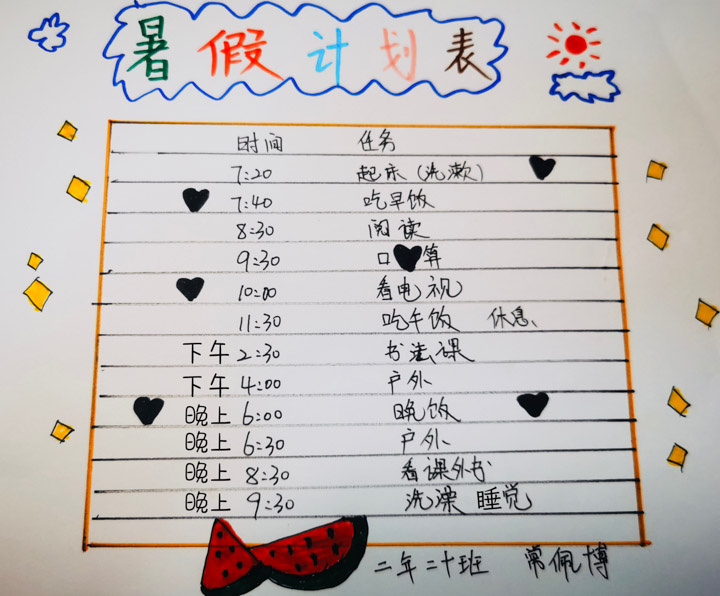 暑假计划表
时间 任务
7:20 起床(洗漱)
7:40 吃早饭
8:30 阅读
9:30 口算
10:00 看电视
11:30 吃午饭 休息
下午 2:30 书法课
下午 4:00 户外
晚上 6:00 晚饭
晚上 6:30 户外
晚上 8:30 看课外书
晚上 9:30 洗澡 睡觉
二年二十班 常佩博